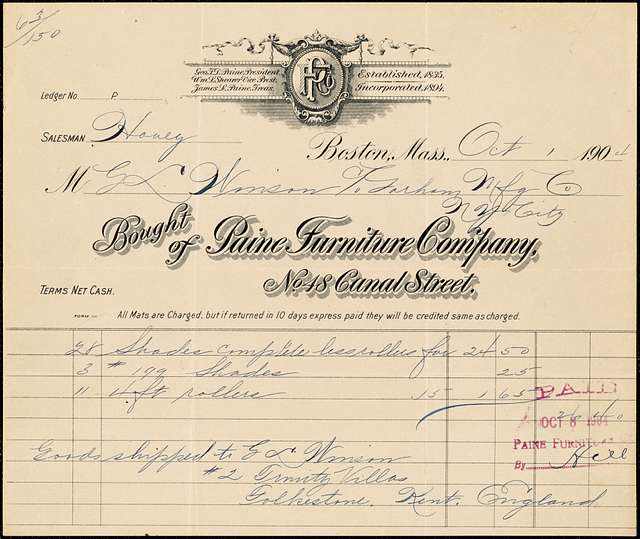 63/150
Geo. L. Paine, President.
Wm. L. Shearer, Vice Prest.
James L. Paine, Treas.
PFCo
Established, 1835.
Incorporated, 1894.
LEDGER NO. P.
SALESMAN Hovey
Boston, Mass., Oct 1, 1904
M E L Winson To Gorham Mfg Co
N Y City
Bought of Paine Furniture Company,
No 48 Canal Street.
TERMS NET CASH.
FORM All Mats are Charged, but if returned in 10 days express paid they will be credited same as charged.
28 Shades complete less rollers for 24 50
3 # 199 Shades 25
11 4 ft rollers 15 1 65
PAID
26 40
OCT 8 1904
PAINE FURNITURE
By Hill
Goods shipped to E L Winson
#2 Trinity Villas
Folkestone. Kent. England